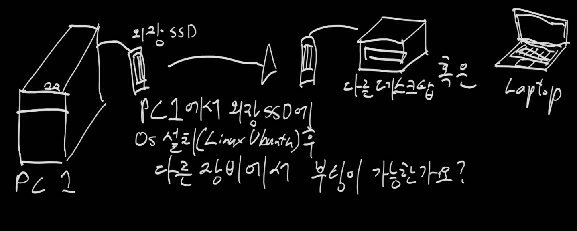 외장 SSD
PC 1
다른 데스크탑 혹은
Laptop
PC1에서 외장 SSD에
OS 설치(Linux Ubuntu)후
다른 장비에서 부팅이 가능한가요?